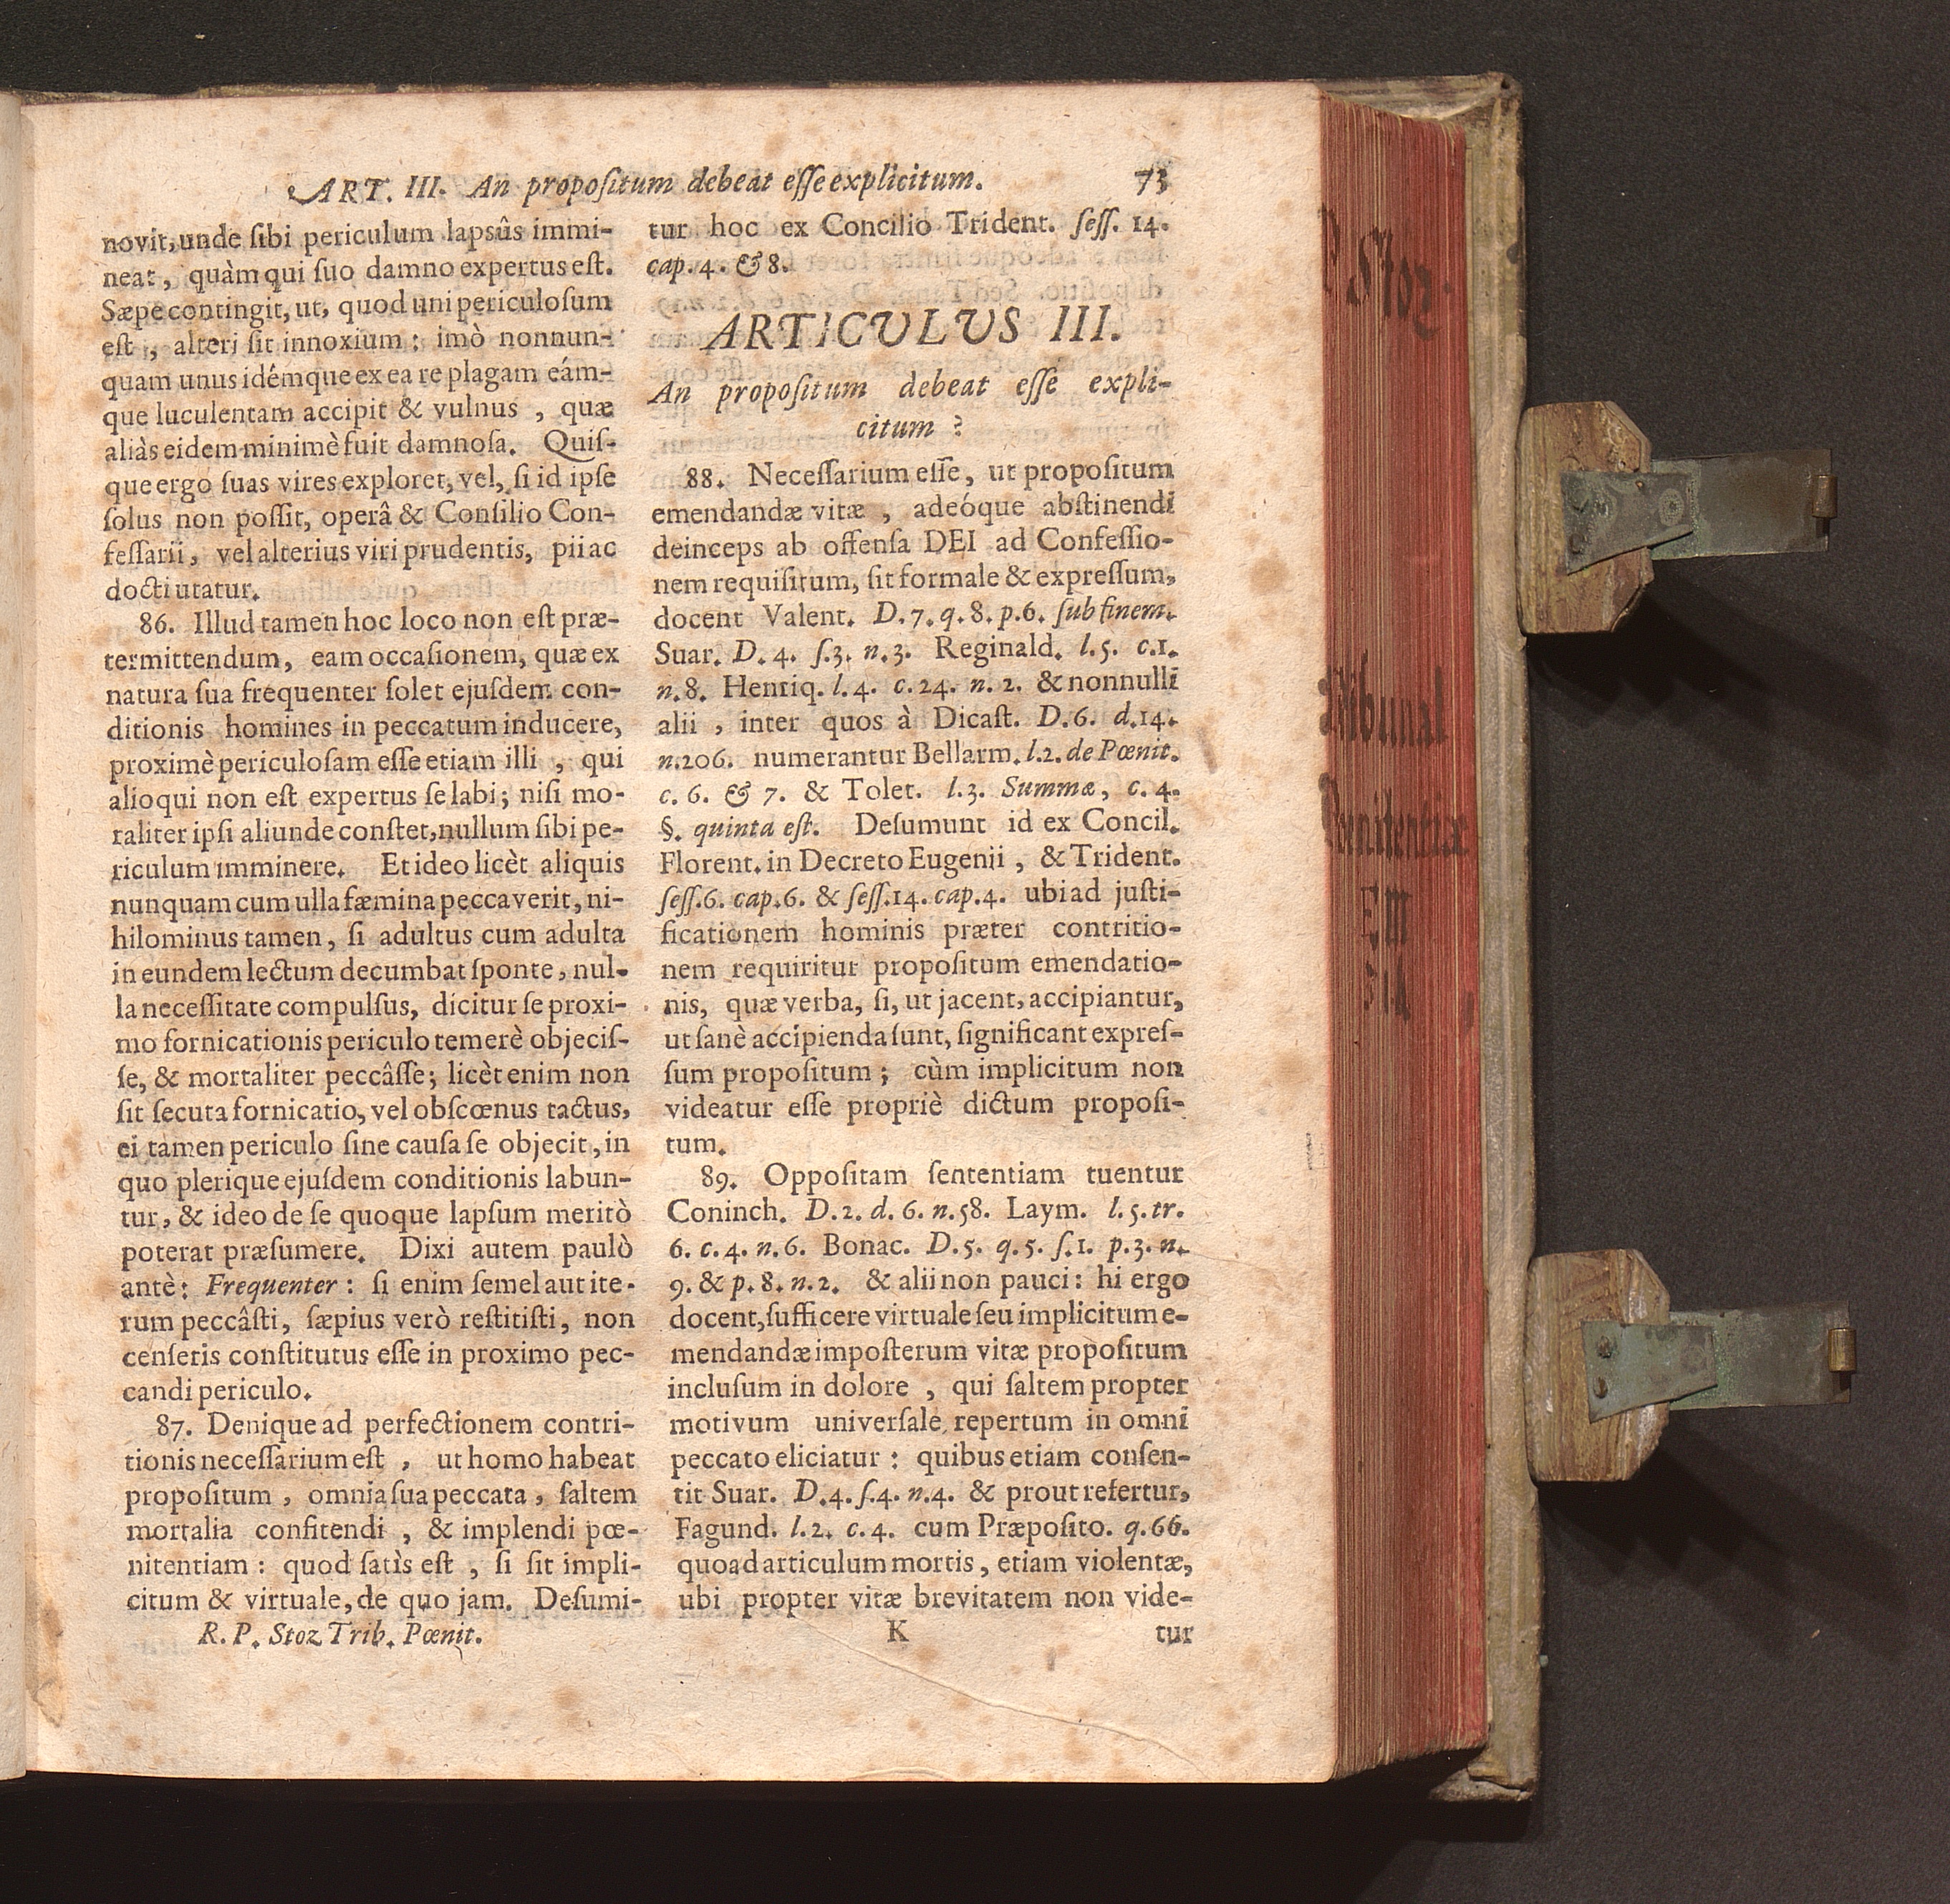 ART. III. An propoſitum debeat eſſe explicitum. 73
novit, unde ſibi periculum lapsûs immi-
neat, quàm qui ſuo damno expertus eſt.
Sæpe contingit, ut, quod uni periculoſum
eſt, alteri ſit innoxium: imò nonnun-
quam unus idémque ex ea re plagam eám-
que luculentam accipit & vulnus, quæ
aliàs eidem minimè fuit damnoſa. Quiſ-
que ergo ſuas vires exploret, vel, ſi id ipſe
ſolus non poſſit, operâ & Conſilio Con-
feſſarii, vel alterius viri prudentis, pii ac
docti utatur.
86. Illud tamen hoc loco non eſt præ-
termittendum, eam occaſionem, quæ ex
natura ſua frequenter ſolet ejuſdem con-
ditionis homines in peccatum inducere,
proximè periculoſam eſſe etiam illi, qui
alioqui non eſt expertus ſe labi; niſi mo-
raliter ipſi aliunde conſtet, nullum ſibi pe-
riculum imminere. Et ideo licèt aliquis
nunquam cum ulla fæmina peccaverit, ni-
hilominus tamen, ſi adultus cum adulta
in eundem lectum decumbat ſponte, nul-
la neceſſitate compulſus, dicitur ſe proxi-
mo fornicationis periculo temerè objeciſ-
ſe, & mortaliter peccâſſe; licèt enim non
ſit ſecuta fornicatio, vel obſcœnus tactus,
ei tamen periculo ſine cauſa ſe objecit, in
quo plerique ejuſdem conditionis labun-
tur, & ideo de ſe quoque lapſum meritò
poterat præſumere. Dixi autem paulò
antè: Frequenter: ſi enim ſemel aut ite-
rum peccâſti, ſæpius verò reſtitiſti, non
cenſeris conſtitutus eſſe in proximo pec-
candi periculo.
87. Denique ad perfectionem contri-
tionis neceſſarium eſt, ut homo habeat
propoſitum, omnia ſua peccata, ſaltem
mortalia confitendi, & implendi pœ-
nitentiam: quod ſatìs eſt, ſi ſit impli-
citum & virtuale, de quo jam. Deſumi-
R. P. Stoz Trib. Pœnit.
tur hoc ex Concilio Trident. ſeſſ. 14.
cap. 4. & 8.
ARTICULUS III.
An propoſitum debeat eſſe expli-
citum?
88. Neceſſarium eſſe, ut propoſitum
emendandæ vitæ, adeóque abſtinendi
deinceps ab offenſa DEI ad Confeſſio-
nem requiſitum, ſit formale & expreſſum,
docent Valent. D. 7. q. 8. p. 6. ſub finem.
Suar. D. 4. ſ. 3. n. 3. Reginald. l. 5. c. 1.
n. 8. Henriq. l. 4. c. 24. n. 2. & nonnulli
alii, inter quos à Dicaſt. D. 6. d. 14.
n. 206. numerantur Bellarm. l. 2. de Pœnit.
c. 6. & 7. & Tolet. l. 3. Summæ, c. 4.
§. quinta eſt. Deſumunt id ex Concil.
Florent. in Decreto Eugenii, & Trident.
ſeſſ. 6. cap. 6. & ſeſſ. 14. cap. 4. ubi ad juſti-
ficationem hominis præter contritio-
nem requiritur propoſitum emendatio-
nis, quæ verba, ſi, ut jacent, accipiantur,
ut ſanè accipienda ſunt, ſignificant expreſ-
ſum propoſitum; cùm implicitum non
videatur eſſe propriè dictum propoſi-
tum.
89. Oppoſitam ſententiam tuentur
Coninch. D. 2. d. 6. n. 58. Laym. l. 5. tr.
6. c. 4. n. 6. Bonac. D. 5. q. 5. ſ. 1. p. 3. n.
9. & p. 8. n. 2. & alii non pauci: hi ergo
docent, ſufficere virtuale ſeu implicitum e-
mendandæ impoſterum vitæ propoſitum
incluſum in dolore, qui ſaltem propter
motivum univerſale, repertum in omni
peccato eliciatur: quibus etiam conſen-
tit Suar. D. 4. ſ. 4. n. 4. & prout refertur,
Fagund. l. 2. c. 4. cum Præpoſito. q. 66.
quoad articulum mortis, etiam violentæ,
ubi propter vitæ brevitatem non vide-
K tur
P Stoz.
Tribunal
Pœnitentiæ